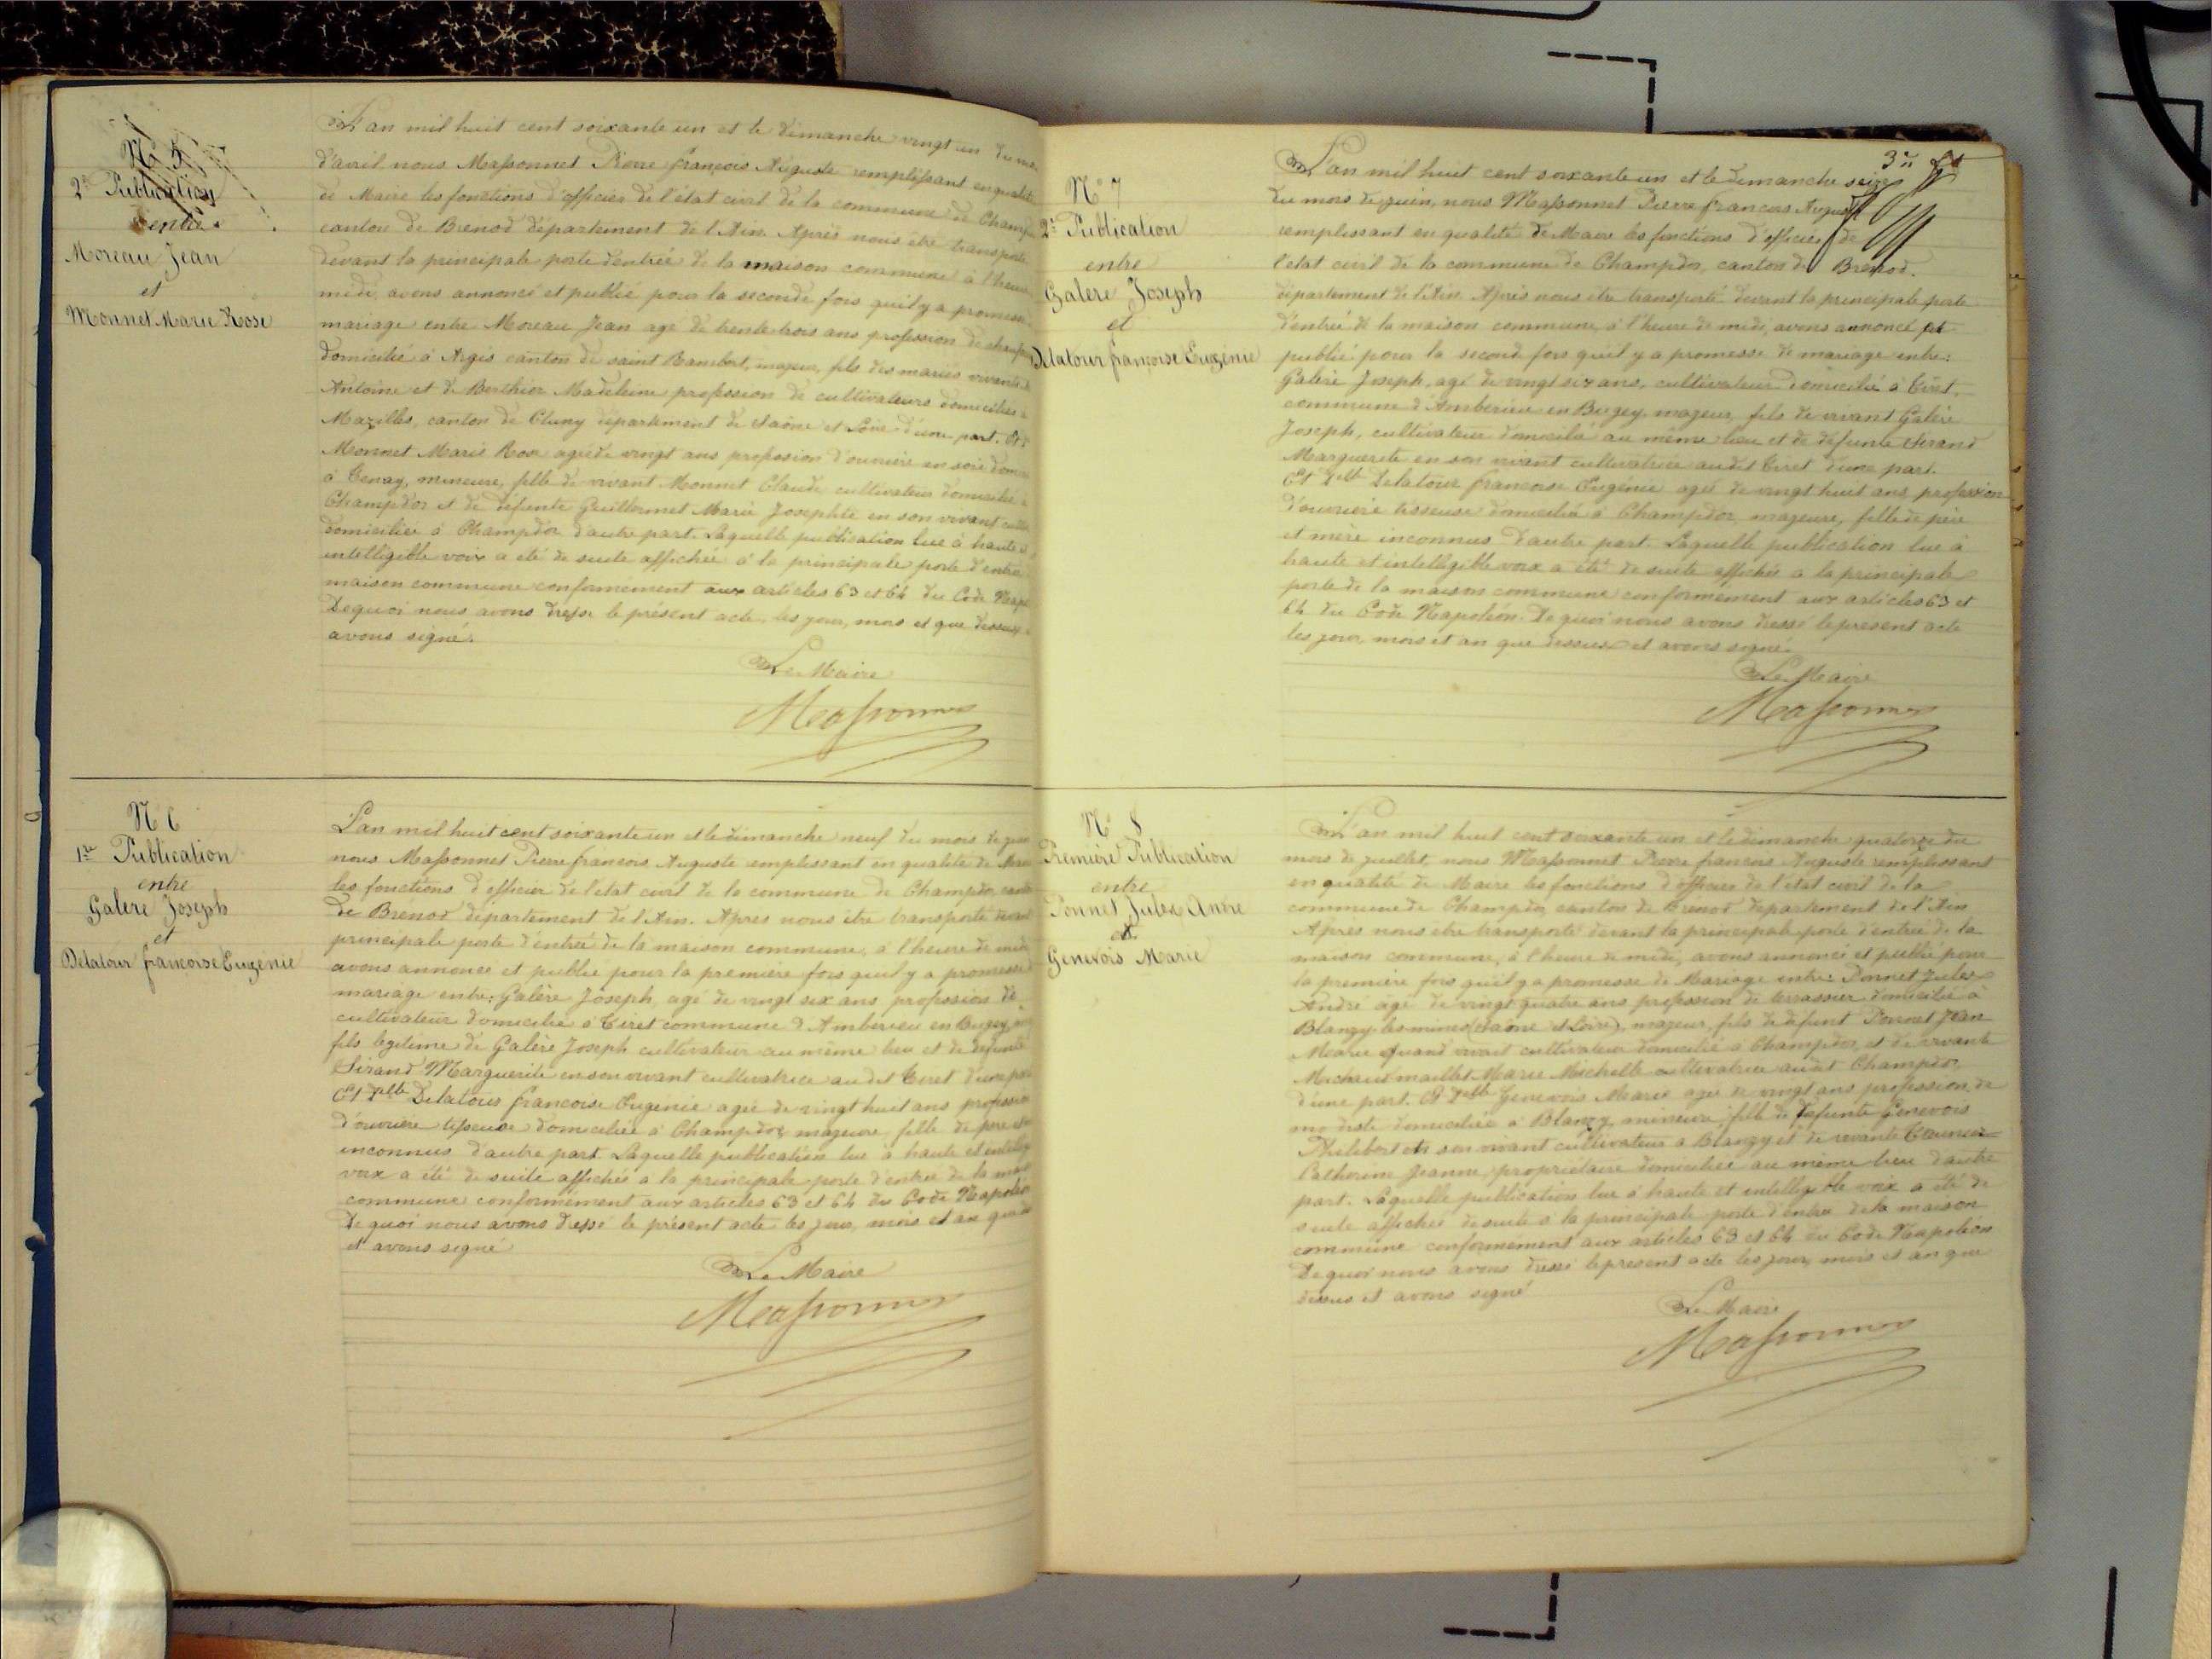 N° 5
2e Publication
entre
Moreau Jean
et
Monnet Marie Rose
L'an mil huit cent soixante un et le dimanche vingt un du
d'avril nous Massonnet Pierre françois Auguste remplissant en qualité
de Maire les fonctions d'officier de l'état civil de la commune de Champ
canton de Brenod département de l'Ain. Après nous être transporté
devant la principale porte d'entrée de la maison commune à l'heure
midi, avons annoncé et publié pour la seconde fois qu'il y a promesse
mariage entre Moreau Jean agé de trente trois ans profession de
domicilié à Argis canton de saint Rambert, majeur, fils des mariés vivants
Antoine et de Berthier Madeleine profession de cultivateurs domiciliés
Mazilles, canton de Cluny département de Saône et Loire d'une part. Et
Monnet Marie Rose agée de vingt ans profession d'ouvrière en soie
à Tenay, mineure, fille de vivant Monnet Claude cultivateur domicilié
Champdor et de défunte Guillermet Marie Josephte en son vivant
domiciliée à Champdor d'autre part. Laquelle publication lue à haute
intelligible voix a été de suite affichée à la principale porte d'entrée
maison commune conformément aux articles 63 et 64 du Code
De quoi nous avons dressé le présent acte les jour, mois et que dessus
avons signé.
Le Maire
Massonnet
N° 6
1re Publication
entre
Galère Joseph
et
Delatour francoise Eugenie
L'an mil huit cent soixante un et le dimanche neuf du mois de juin
nous Massonnet Pierre francois Auguste remplissant en qualité de Maire
les fonctions d'officier de l'etat civil de la commune de Champdor
de Brénod département de l'Ain. Apres nous être transporté devant
principale porte d'entrée de la maison commune, à l'heure de midi
avons annonce et publié pour la première fois qu'il y a promesse
mariage entre: Galère Joseph agé de vingt six ans profession de
cultivateur domicilié à Tiret commune d'Amberieu en Bugey,
fils legitime de Galère Joseph cultivateur au même lieu et de défunte
Sirand Marguerite en son vivant cultivatrice au dit Tiret d'une part
Et Delle Delatour francoise Eugenie agée de vingt huit ans profession
d'ouvriere tisseuse domiciliée à Champdor, majeure, fille de pere et
inconnus d'autre part. Laquelle publication lue à haute et
voix a été de suite affichée a la principale porte d'entrée de la
commune conformément aux articles 63 et 64 du Code Napoléon
De quoi nous avons dressé le présent acte les jour, mois et an que
et avons signé
Le Maire
Massonnet
3e
N° 7
2e Publication
entre
Galère Joseph
et
Delatour françoise Eugénie
L'an mil huit cent soixante un et le dimanche seize
du mois de juin, nous Massonnet Pierre francois Auguste
remplissant en qualité de Maire les fonctions d'officier de
l'etat civil de la commune de Champdor, canton de Brenod.
département de l'Ain. Après nous être transporté devant la principale porte
d'entrée de la maison commune, à l'heure de midi, avons annoncé et
publié pour la seconde fois qu'il y a promesse de mariage entre:
Galère Joseph, agé de vingt six ans, cultivateur domicilié à Tiret,
commune d'Amberieu en Bugey, majeur, fils de vivant Galère
Joseph, cultivateur domicilié au même lieu et de défunte Sirand
Marguerite en son vivant cultivatrice audit Tiret d'une part.
Et Delle Delatour francoise Eugénie agée de vingt huit ans profession
d'ouvriere tisseuse domiciliée à Champdor, majeure, fille de père
et mère inconnus d'autre part. Laquelle publication lue à
haute et intelligible voix a été de suite affichée a la principale
porte de la maison commune conformément aux articles 63 et
64 du Code Napoléon. De quoi nous avons dressé le present acte
les jour, mois et an que dessus et avons signé.
Le Maire
Massonnet
N° 8
Première Publication
entre
Ponnet Jules André
et
Genevois Marie
L'an mil huit cent soixante un et le dimanche quatorze du
mois de juillet, nous Massonnet Pierre francois Auguste remplissant
en qualité de Maire les fonctions d'officier de l'état civil de la
commune de Champdor, canton de Brénod département de l'Ain
Après nous etre transporté devant la principale porte d'entrée de la
maison commune, à l'heure de midi, avons annoncé et publié pour
la première fois qu'il y a promesse de Mariage entre: Ponnet Jules
André agé de vingt quatre ans profession de terrassier domicilié à
Blanzy les mines (Saône et Loire), majeur, fils de défunt Ponnet Jean
Marie quand vivait cultivateur domicilié à Champdor, et de vivante
Michaud maillet Marie Michelle cultivatrice audit Champdor,
d'une part. Et Delle Genevois Marie agée de vingt ans profession de
modiste domiciliée à Blanzy, mineure, fille de defunte Genevois
Philibert en son vivant cultivateur a Blanzy et de vivante
Catherine Jeanne, propriétaire domiciliée au même lieu d'autre
part. Laquelle publication lue à haute et intelligible voix a été de
suite affichée de suite à la principale porte d'entrée de la maison
commune conformément aux articles 63 et 64 du Code Napoléon
De quoi nous avons dressé le present acte les jour, mois et an que
dessus et avons signé
Le Maire
Massonnet